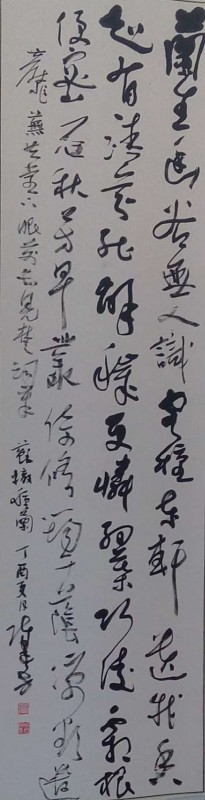 蘭生幽谷無人識客種東軒遺我香
知有清芬能解穢更憐細葉巧凌霜根
便密石秋芳早叢倚修筠午蔭涼欲遣
蘼蕪共堂下眼前長見楚詞章 蘇轍種蘭 丁酉夏月